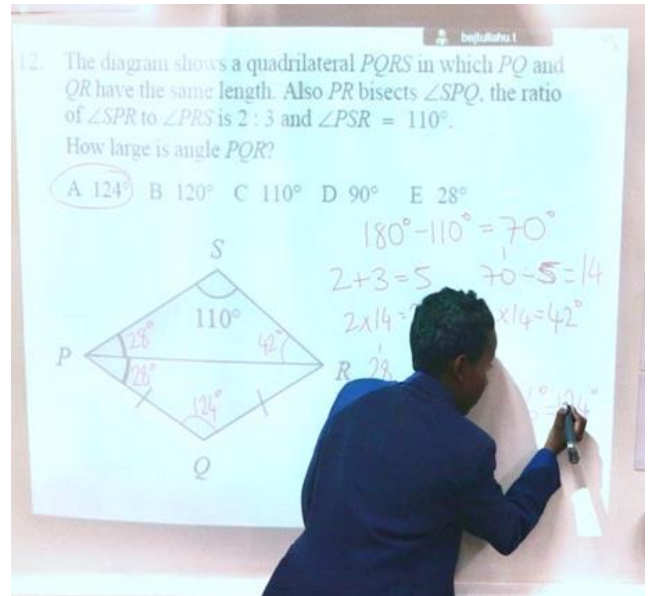 bejtullahu.t
12. The diagram shows a quadrilateral PQRS in which PQ and
QR have the same length. Also PR bisects ∠SPQ, the ratio
of ∠SPR to ∠PRS is 2 : 3 and ∠PSR = 110°.
How large is angle PQR?
A 124° B 120° C 110° D 90° E 28°
180° - 110° = 70°
2+3=5 70÷5=14
2x14= x14=42°
S
110°
28° 42°
P R 28
28°
124° =124°
Q